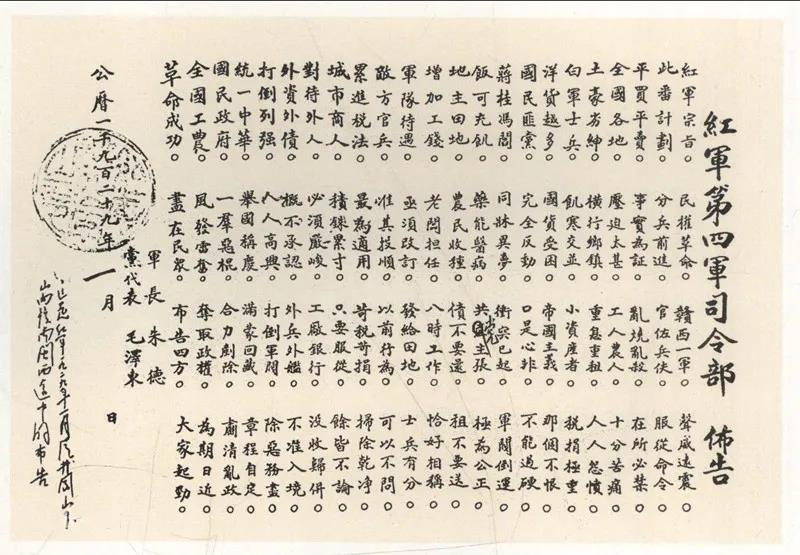 紅軍第四軍司令部 佈告
紅軍宗旨。民權革命。贛西一軍。聲威遠震。
此番計劃。分兵前進。官佐兵伕。服從命令。
平買平賣。事實為証。亂燒亂殺。在所必禁。
全國各地。壓迫太甚。工人農人。十分苦痛。
土豪劣紳。橫行鄉鎮。重息重租。人人怨憤。
白軍士兵。飢寒交並。小資產者。税捐極重。
洋貨越多。國貨受困。帝國主義。那個不恨。
國民匪黨。完全反動。口是心非。不能過硬。
蔣桂馮閻。同牀異夢。衝突已起。軍閥倒運。
飯可充飢。藥能醫病。共黨主張。極為公正。
地主田地。農民收種。債不要還。租不要送。
增加工錢。老闆担任。八時工作。恰好相稱。
軍隊待遇。亟須改訂。發給田地。士兵有分。
敵方官兵。准其投順。以前行為。可以不問。
累進税法。最為適用。苛税苛捐。掃除乾净。
城市商人。積銖累寸。只要服從。餘皆不論。
對待外人。必須嚴峻。工廠銀行。没收歸併。
外資外債。概不承認。外兵外艦。不准入境。
打倒列强。人人高興。打倒軍閥。除惡務盡。
統一中華。舉國稱慶。滿蒙回藏。章程自定。
國民政府。一群惡棍。合力剷除。肅清亂政。
全國工農。風發雷奮。奪取政權。為期日近。
革命成功。盡在民眾。布告四方。大家起勁。
軍長 朱德
黨代表 毛澤東
公曆一千九百二十九年一月 日
这是紅軍一九二九年一月從井岡山
向贛南闽西途中的布告